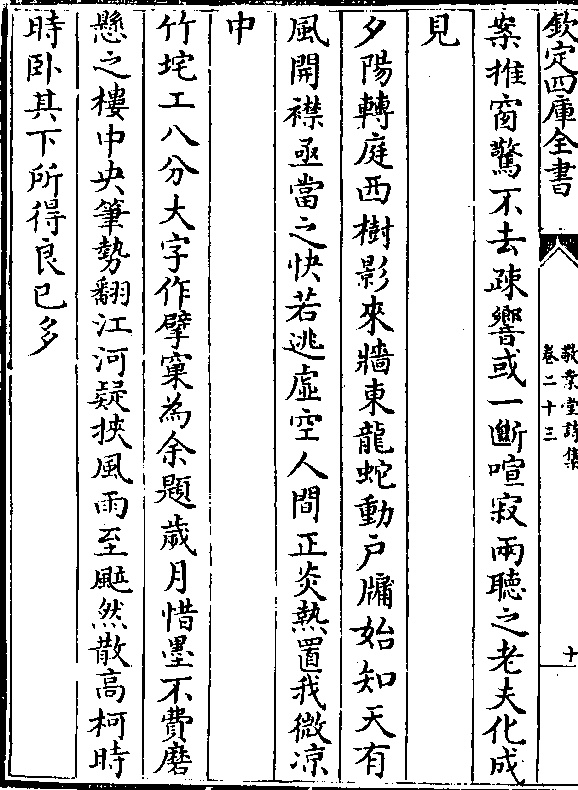 欽定四庫全書
敬業堂詩集
卷二十三
十
案推窗驚不去疎響或一斷喧寂兩聽之老夫化成
見
夕陽轉庭西樹影來牆東龍蛇動戶牖始知天有
風開襟亟當之快若逃虛空人間正炎熱置我微凉
中
竹垞工八分大字作擘窠為余題歲月惜墨不費磨
懸之樓中央筆勢翻江河疑挾風雨至颯然散高柯時
時卧其下所得良已多